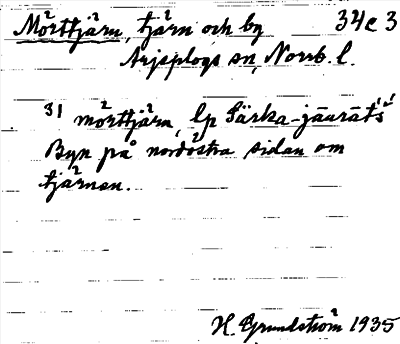 Mörttjärn, tjärn och by 34c3
Arjeplogs sn, Norrb. l.
31 mörttjärn, lp Särka-jāurāts
Byn på nordöstra sidan om
tjärnen.
H. Grundström 1935